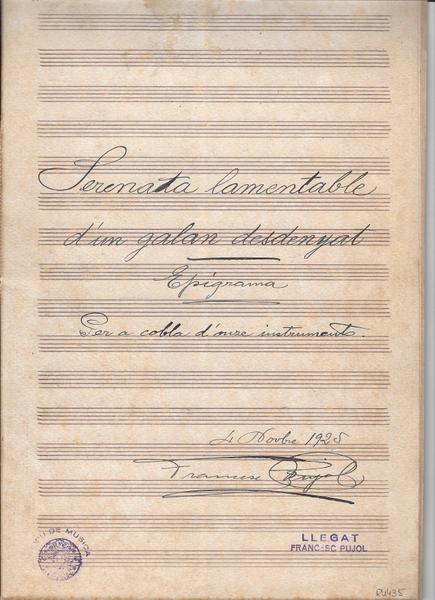 Serenata lamentable
d'un galan desdenyat
Epigrama
Per a cobla d'onze instruments.
4 Novbre 1925
Francesc Pujol
DE MUSICA
LLEGAT
FRANC-SC PUJOL